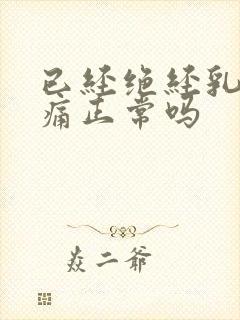 已经绝经乳
痛正常吗
焱二爷